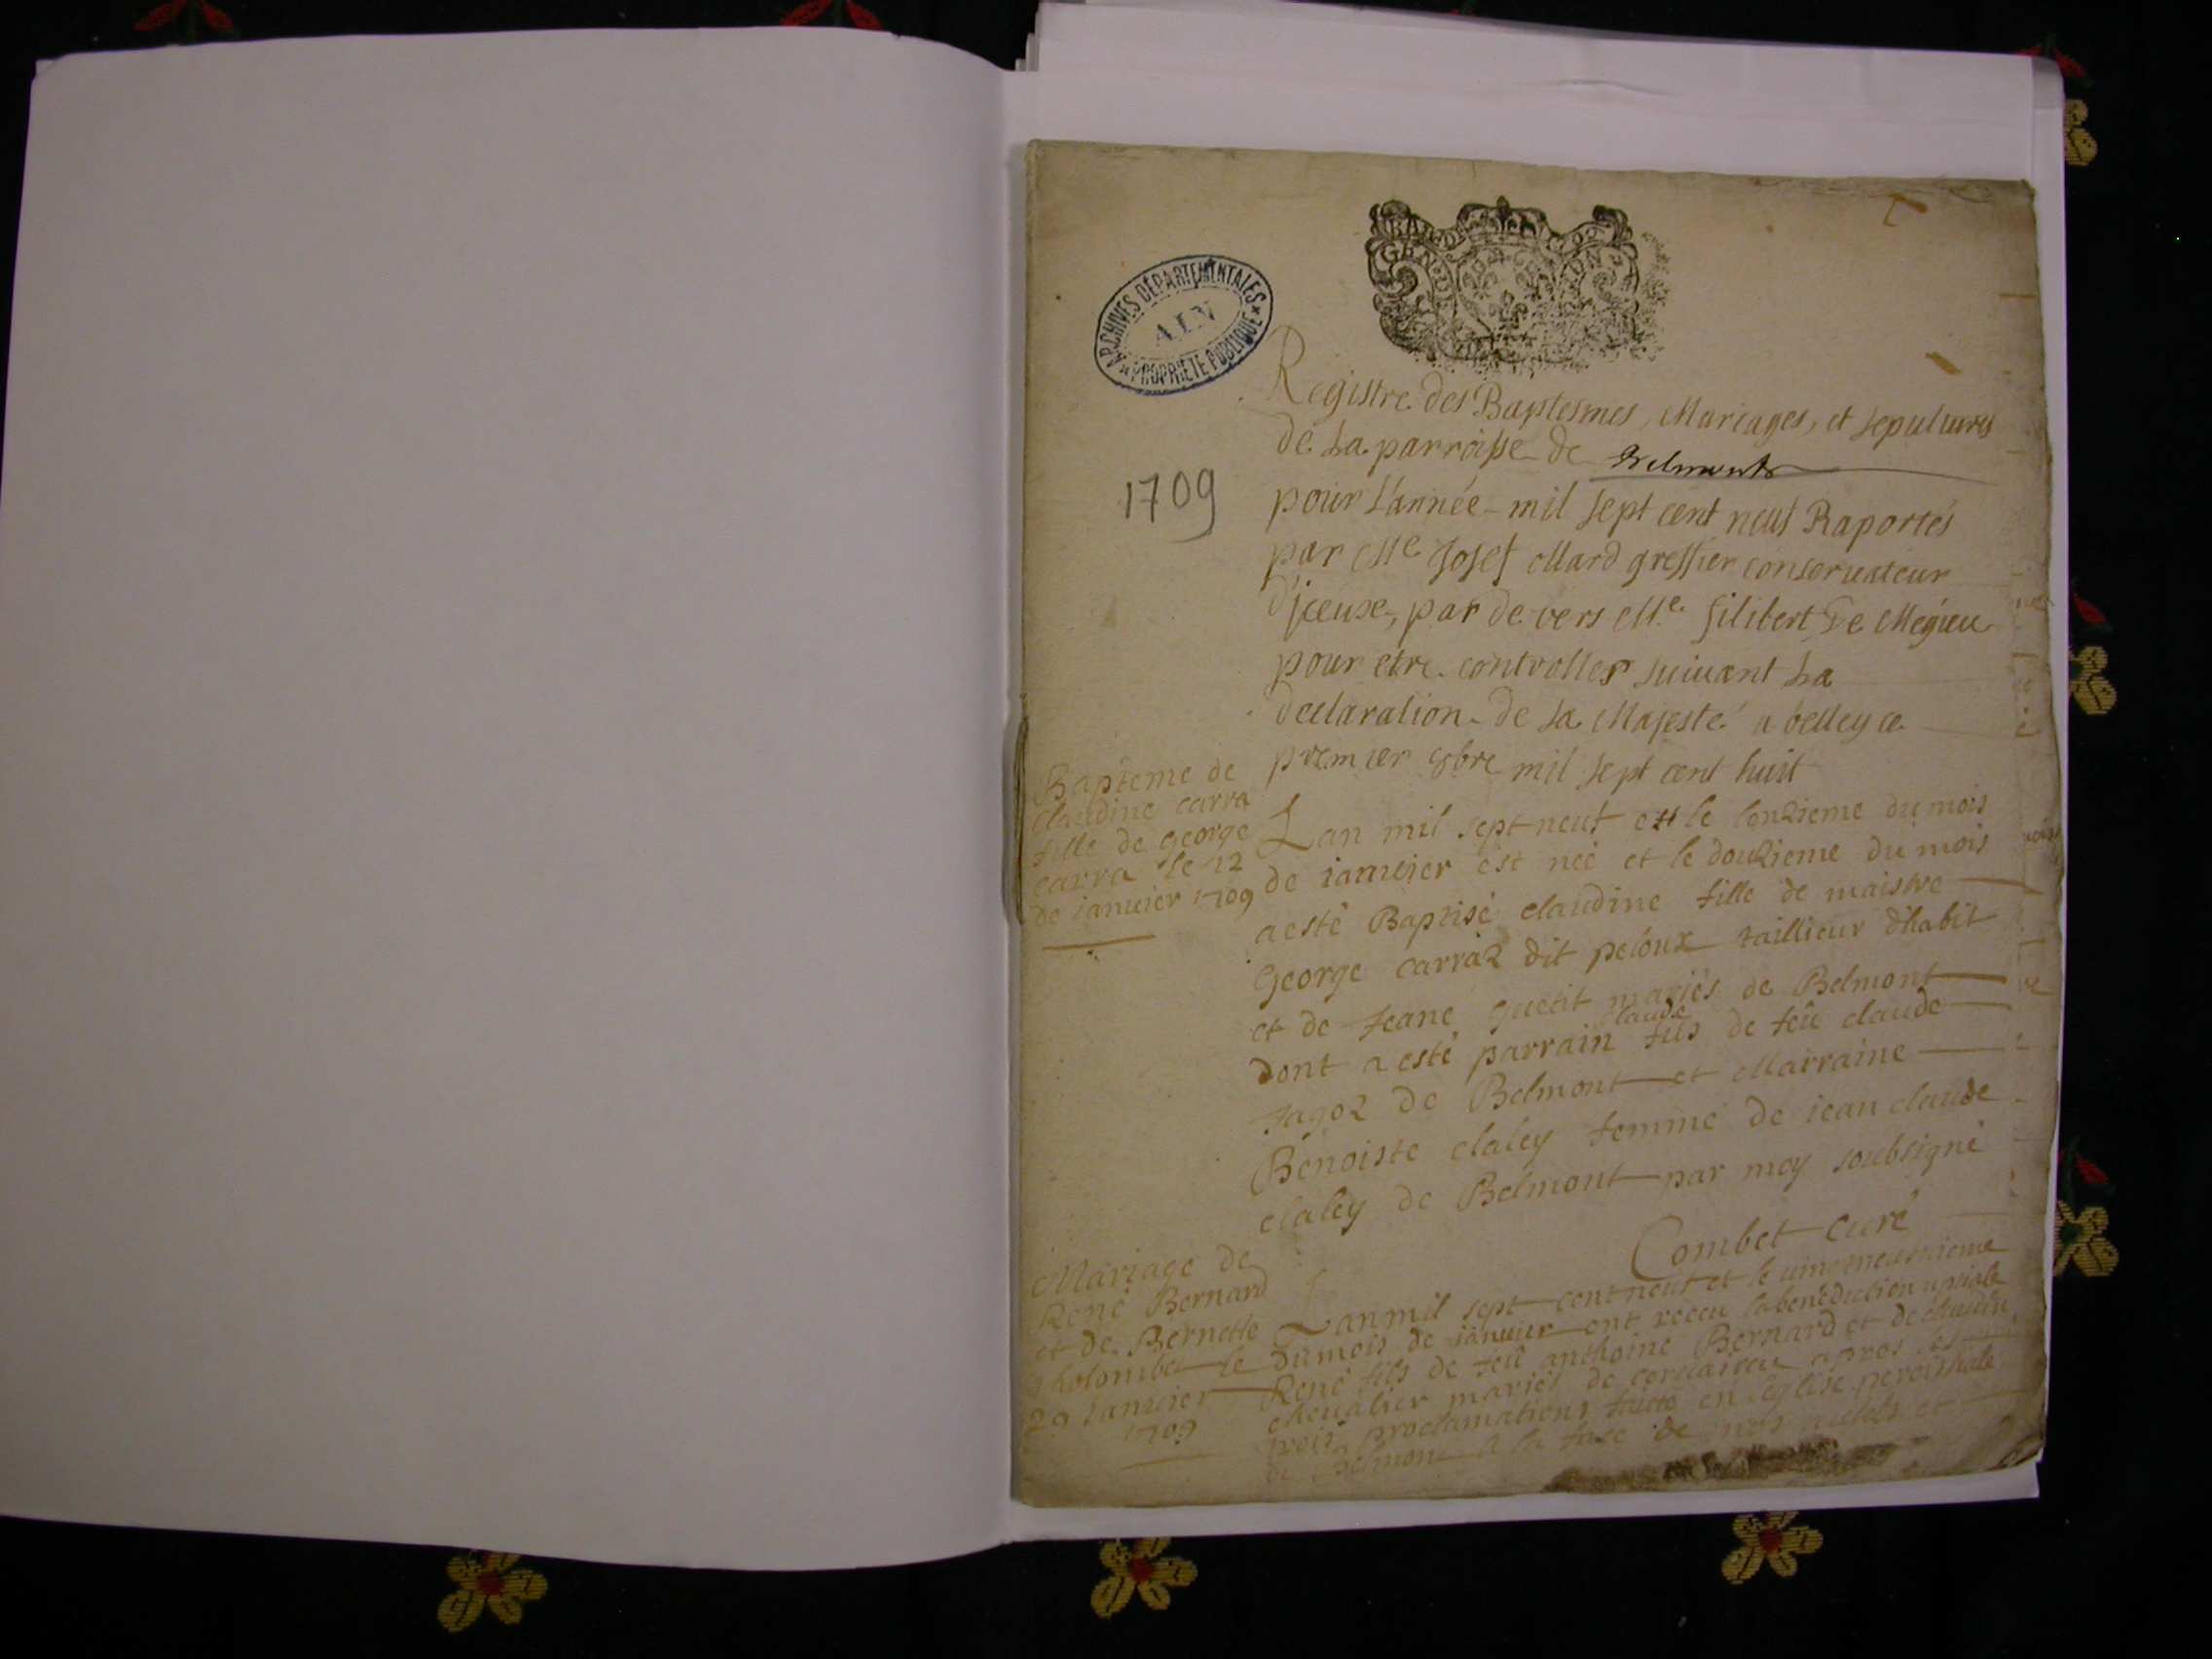 ARCHIVES DÉPARTEMENTALES
AIN
PROPRIÉTÉ PUBLIQUE
GEN
1709
Registre des Baptesmes, Mariages, et sepultures
de La parroisse de Belmont
pour L'année mil sept cent neuf Raportés
par Me Josef Mard greffier conservateur
d'iceux, par devers Me. filibert De Megieu
pour etre controller suivant La
declaration de sa Majesté a belley ce
premier 9bre mil sept cent huit
Bapteme de
claudine carra
fille de george
carra le 12
de ianvier 1709
Lan mil sept neuf et le onzieme du mois
de ianvier est neé et le douzieme du mois
a esté Baptisé claudine fille de maistre
George carraz dit peloux taillieur d'habit
et de Jeane guetit mariés de Belmont
claude
dont a esté parrain fils de feû claude
Jagoz de Belmont et Marraine
Benoiste claley femme de iean claude
claley de Belmont par moy soubsigné
Combet curé
Mariage de
René Bernard
et de Bernette
le
29 Ianvier
1709
Lan mil sept cent neuf et le vint neufvieme
du mois de ianvier ont receu la benediction
René fils de feû anthoine Bernard et de
chevalier mariés de apres les
trois proclamations faicte en l'eglise
de Belmont a la de et